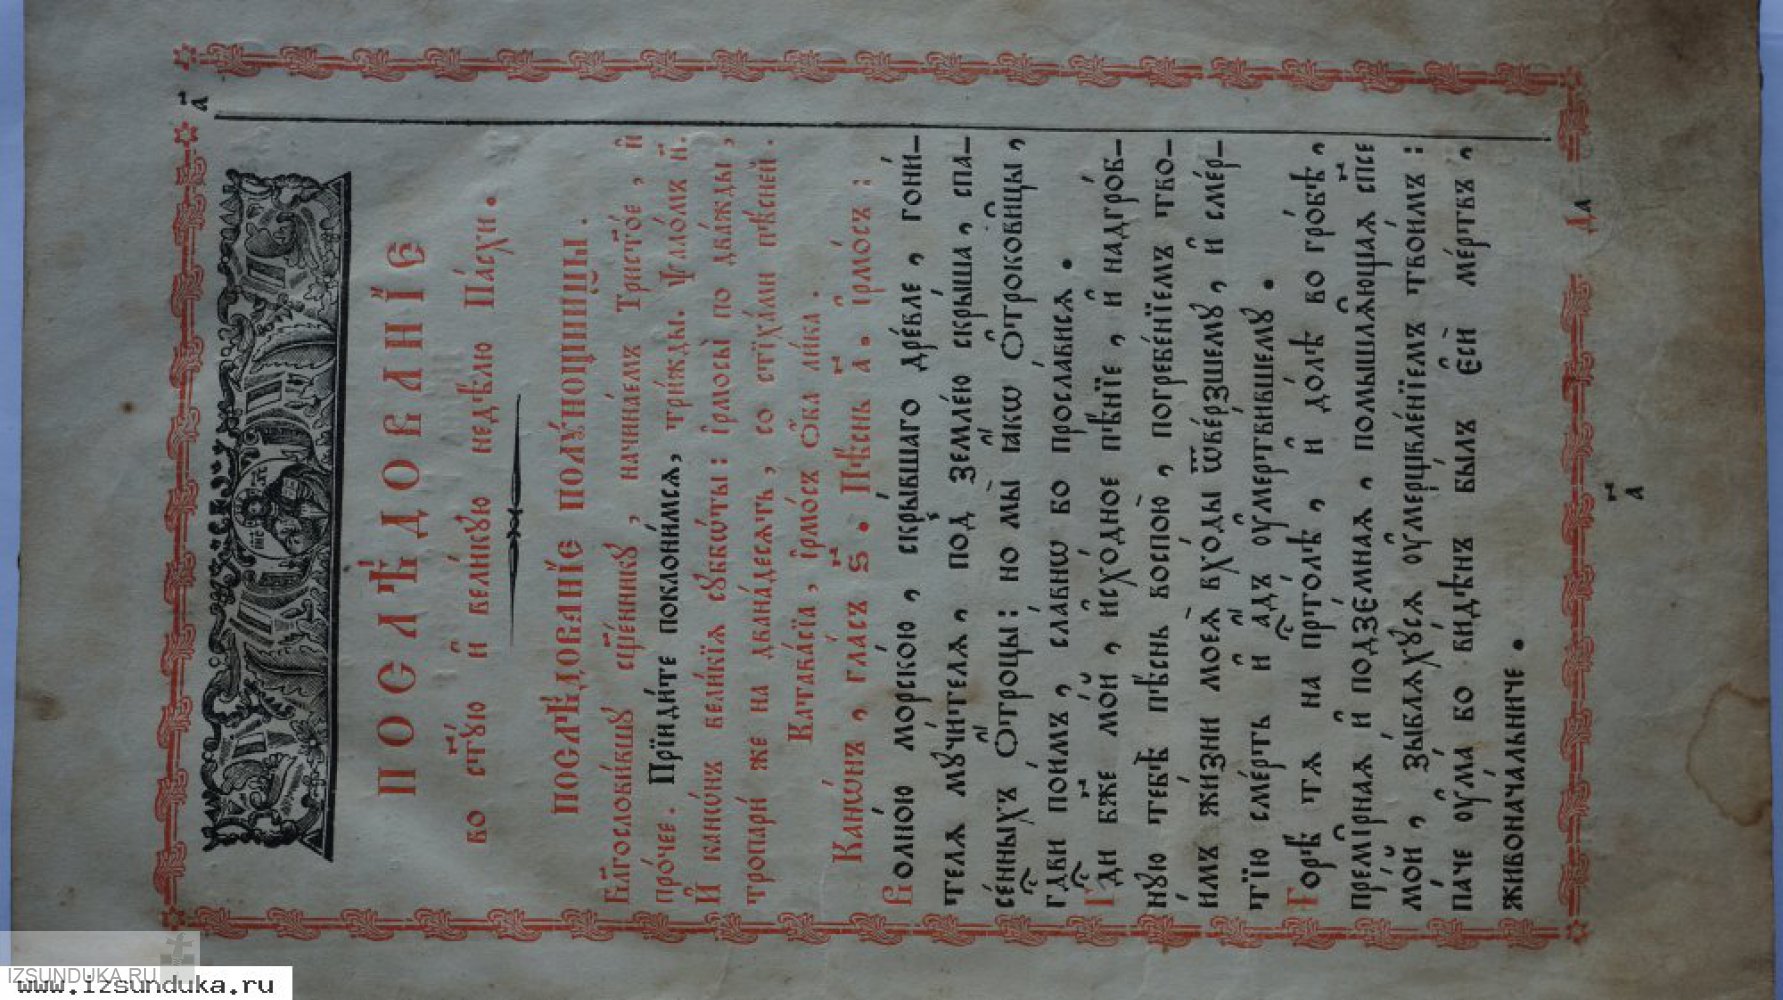 а҃
ПОСЛѢ́ДОВАНЇЕ
во ст҃ꙋ́ю и҆ вели́кꙋю недѣ́лю Па́схи.
ПОСЛѢ́ДОВАНЇЕ ПОЛꙊ́НОЩНИЦЫ.
Бл҃гослови́вшꙋ сщ҃е́нникꙋ, начина́емъ Трист҃о́е, и҆
про́чее. Прїиди́те поклони́мсѧ, три́жды. Ѱало́мъ н҃.
И҆ канѡ́нъ вели́кїѧ сꙋббѡ́ты: і҆рмосы̀ по два́жды,
тропари́ же на двана́десѧть, со стїха́ми пѣ́сней.
Катава́сїа, і҆рмо́съ ѻ҆́ба ли́ка.
Канѡ́нъ, гла́съ ѕ҃. Пѣ́снь а҃. і҆рмо́съ:
Волно́ю морско́ю, скры́вшаго дре́вле, гони́-
телѧ мꙋчи́телѧ, под̾ земле́ю скры́ша, спа-
се́нныхъ Ѻ҆́троцы: но мы̀ ꙗ҆́кѡ Ѻ҆трокови́цы,
гд҇ви пои́мъ, сла́внѡ бо просла́висѧ.
Гд҇и бж҃е мо́й, и҆схо́дное пѣ́нїе, и҆ надгро́б-
ною тебѣ̀ пѣ́снь воспою̀, погребе́нїемъ тво-
и́мъ жи́зни моеѧ̀ вхо́ды ѿве́рзшемꙋ, и҆ сме́р-
тїю сме́рть и҆ а҆́дъ ᲂу҆мертви́вшемꙋ.
Горѣ̀ тѧ на прⷭ҇то́лѣ, и҆ до́лѣ во гро́бѣ,
преми́рнаѧ и҆ подзе́мнаѧ, помышлѧ́ющаѧ сп҃се
мо́й, зы́блѧхꙋсѧ ᲂу҆мерщвле́нїемъ твои́мъ:
па́че ᲂу҆ма̀ бо ви́дѣнъ бы́лъ Е҆сѝ ме́ртвъ,
живонача́льниче.
а҃
Да
IZSUNDUKA.RU
www.izsunduka.ru